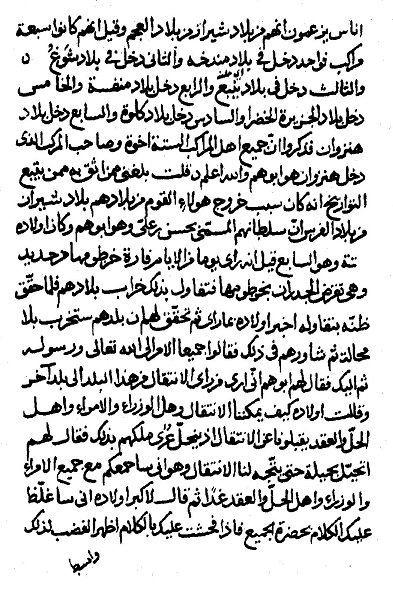 اناس يزعمون انهم من بلاد شيراز من بلاد العجم وقيل انهم كانوا سبعة
مراكب فواحد دخل في بلاد مندخه والثاني دخل في بلاد شوغو
والثالث دخل في بلاد ينبع والرابع دخل بلاد منفسة والخامس
دخل بلاد الجزيرة الخضرا والسادس دخل بلاد كلوة والسابع دخل بلاد
هنزوان فذكروا ان جميع اهل المراكب الستة اخوة وصاحب المركب الذي
دخل هنزوان هو ابوهم والله اعلم قلت بلغني ممن اثق به ممن يتتبع
التواريخ انه كان سبب خروج هولاء القوم من بلادهم بلاد شيراز
من بلاد الفرس ان سلطانهم المسمى بحسن بن علي وهو ابوهم وكان اولاده
ستة وهو السابع قيل انه راى يوما من الايام فارة خرطومها من حديد
وهي تقرض الجدران بخرطومها فتفاول بذلك خراب بلادهم فلما حقق
ظنه بتفاوله اخبر اولاده بما راى ثم تحقق لهم ان بلدهم ستخرب بلا
محالة ثم شاورهم في ذلك فقالوا جميعا الامر الى الله تعالى ورسوله
ثم اليك فقال لهم ابوهم اني ارى من راى الانتقال من هذا البلد الى بلد آخر
وقالت اولاده كيف يمكننا الانتقال وهل الوزراء والامراء واهل
الحل والعقد يقبلونا عن الانتقال اذ ينحل عرى ملكهم بذلك فقال لهم
اتحيل بحيلة حتى يتجه لنا الانتقال وهو اني ساجمعكم مع جميع الامراء
والوزراء واهل الحل والعقد غدا ثم قال لاكبر اولاده اني ساغلظ
عليك الكلام بحضرة الجميع فاذا فحشت عليك بالكلام اظهر الغضب لذلك